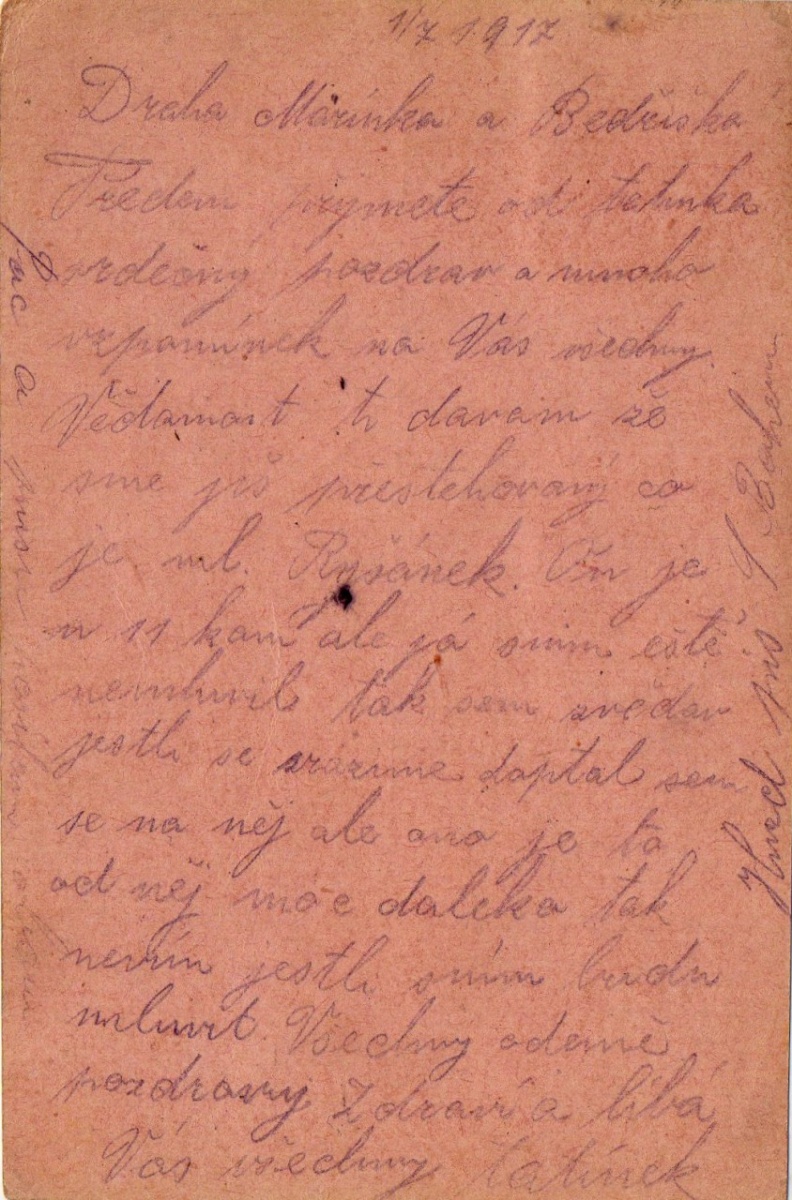 1/7 1917
Draha Mařinka a Bedřiška
Předem přijmete od tatinka
srdečný pozdrav a mnoho
vzpomínek na Vás všechny
Vědomost ti davam že
sme již přestěhovaný co
je ml. Ryšánek. On je
u 11 kom ale já sním eště
nemluvil tak sem zvědav
jestli se srazíme doptal sem
se na něj ale ono je to
od něj moc daleko tak
nevím jestli sním budu
mluvit Všechny odemě
pozdravy Zdraví a líbá
Vás všechny tatínek
Hned piš S Bohem
a